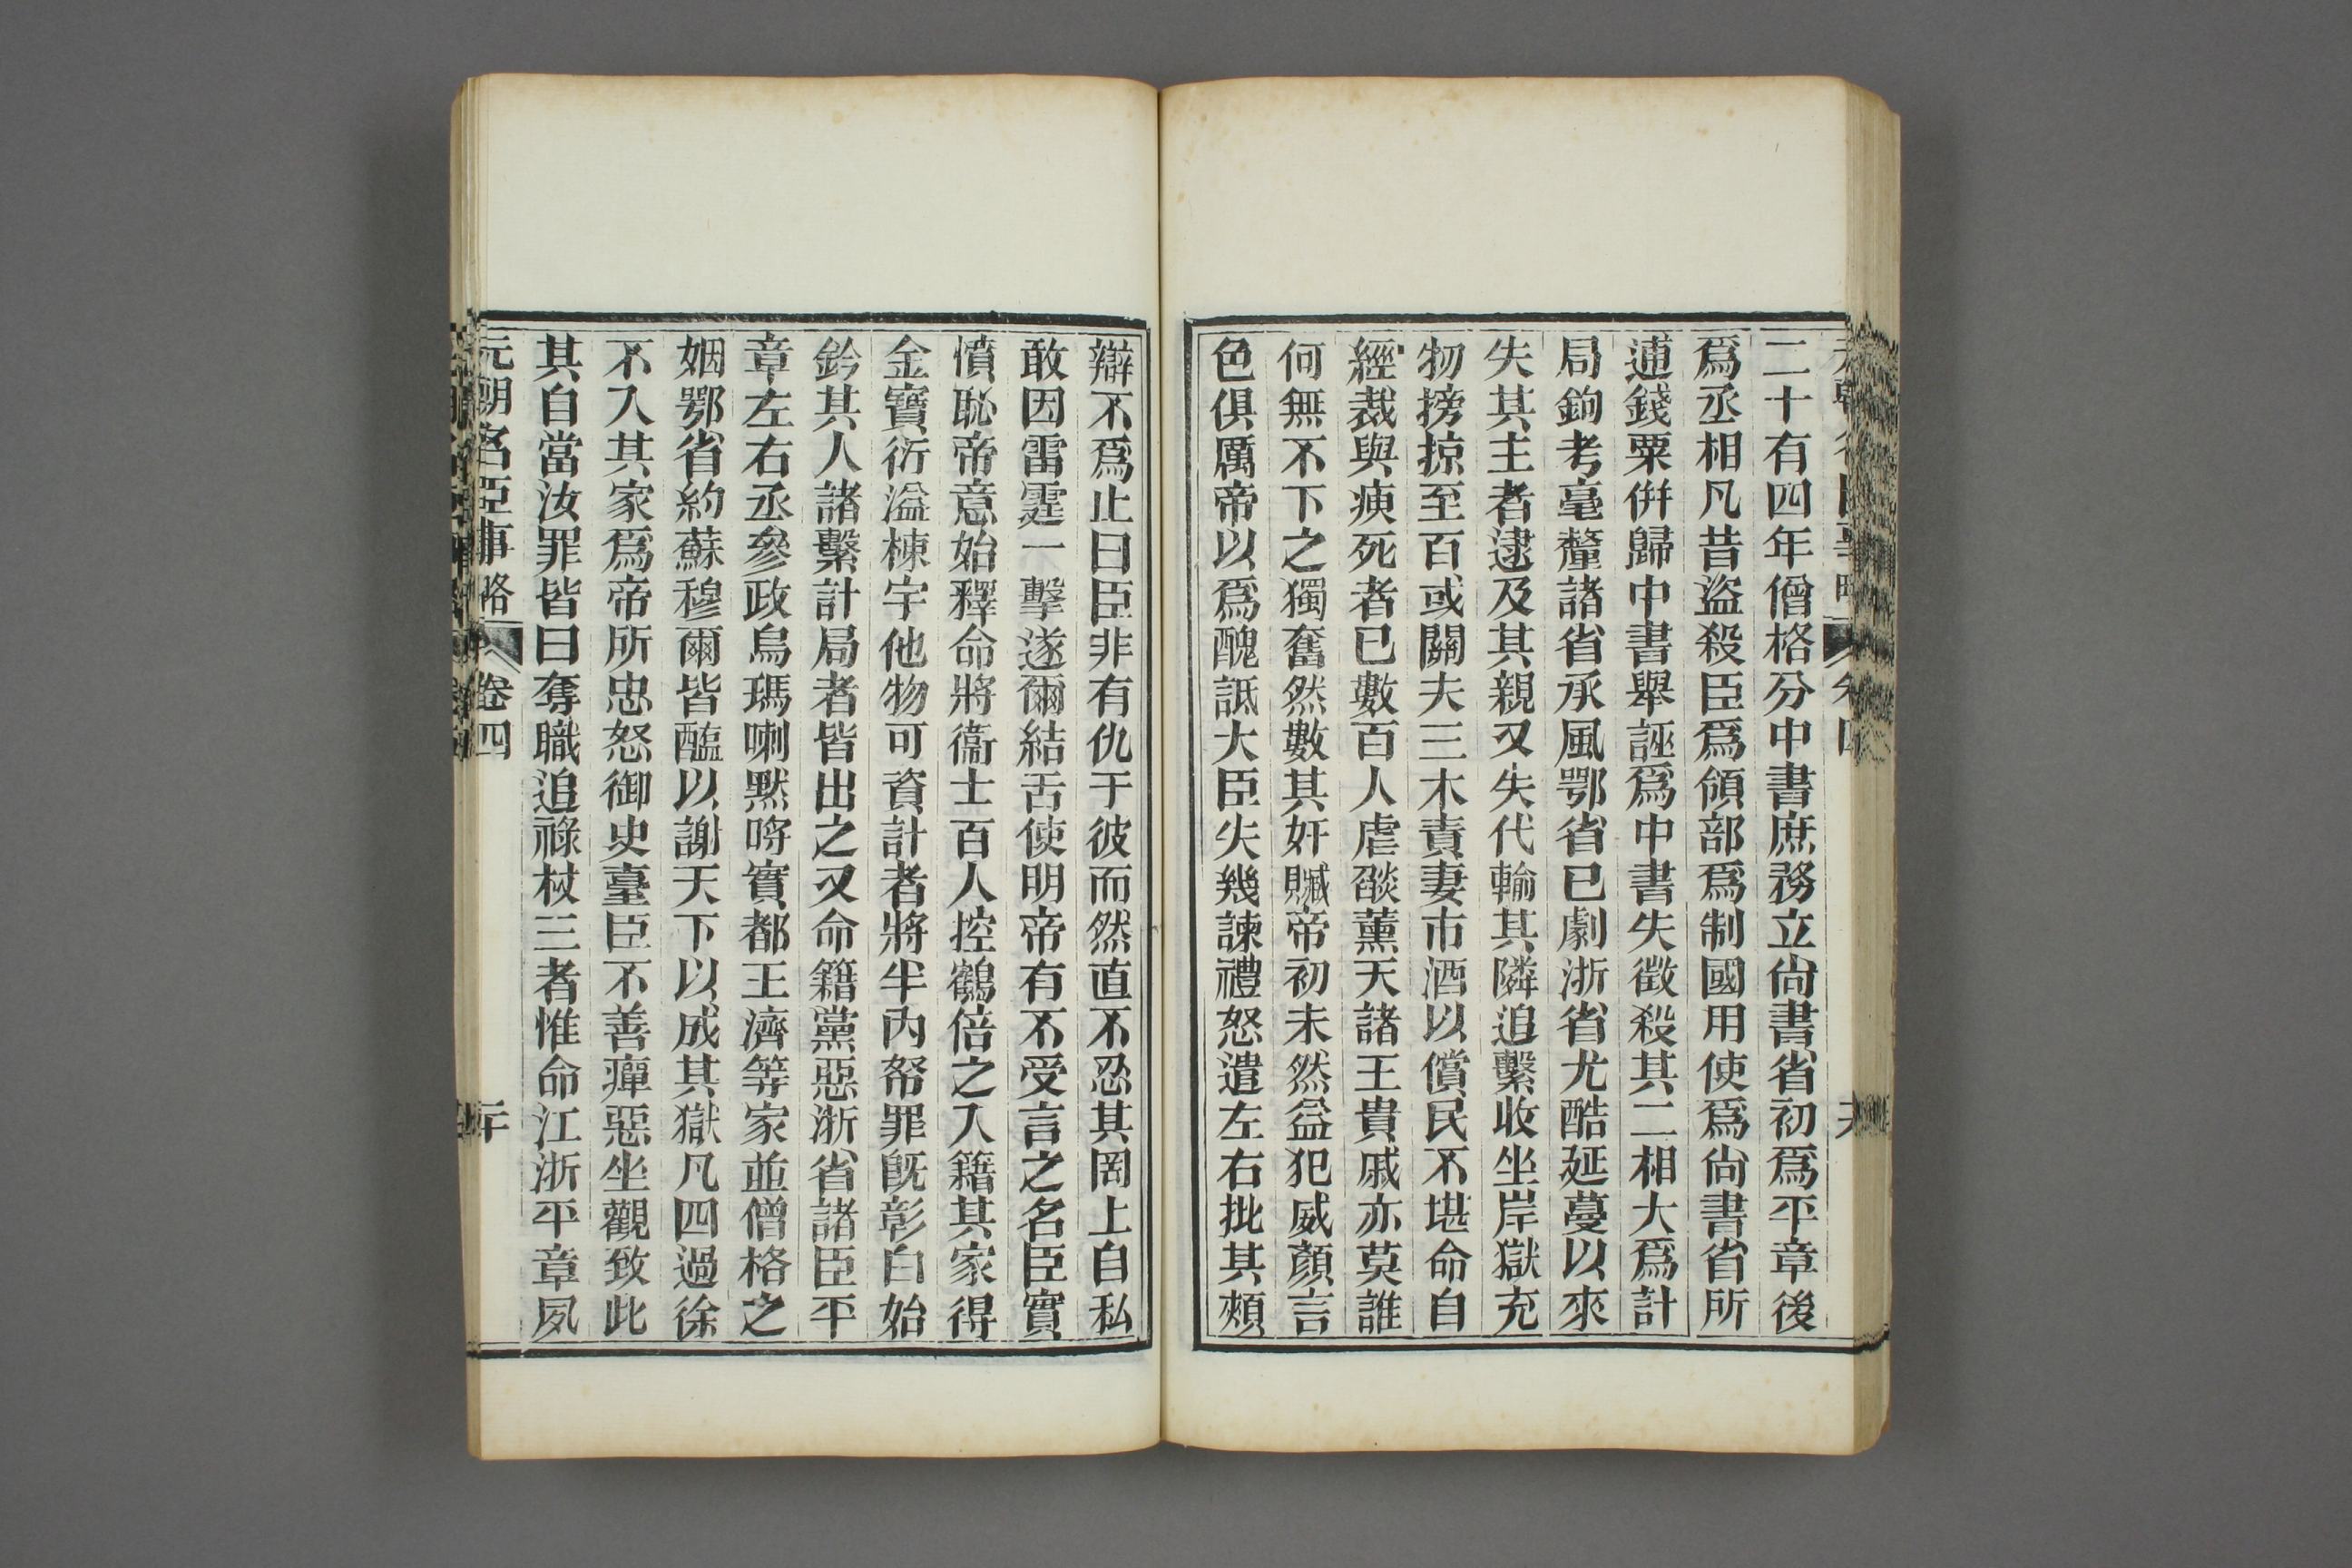 二十有四年僧格分中書庶務立尙書省初爲平章後
爲丞相凡昔盜殺臣爲領部爲制國用使爲尙書省所
逋錢粟倂歸中書舉誣爲中書失徵殺其二相大爲計
局鉤考毫釐諸省承風鄂省已劇浙省尤酷延蔓以來
失其主者逮及其親又失代輸其隣追繫收坐岸獄充
物搒掠至百或關夫三木責妻市酒以償民不堪命自
經裁與瘐死者已數百人虐燄薰天諸王貴戚亦莫誰
何無不下之獨奮然數其奸贓帝初未然益犯威顏言
色俱厲帝以爲醜詆大臣失幾諫禮怒遣左右批其頰
辯不爲止曰臣非有仇于彼而然直不忍其罔上自私
敢因雷霆一擊遂爾結舌使明帝有不受言之名臣實
憤恥帝意始釋命將衞士百人控鶴倍之入籍其家得
金寶衍溢棟宇他物可資計者將半內帑罪旣彰白始
鈐其人諸繫計局者皆出之又命籍黨惡浙省諸臣平
章左右丞參政烏瑪喇默哷實都王濟等家並僧格之
姻鄂省約蘇穆爾皆醢以謝天下以成其獄凡四過徐
不入其家爲帝所忠怒御史臺臣不善癉惡坐觀致此
其自當汝罪皆曰奪職追祿杖三者惟命江浙平章夙
元朝名臣事略
卷四